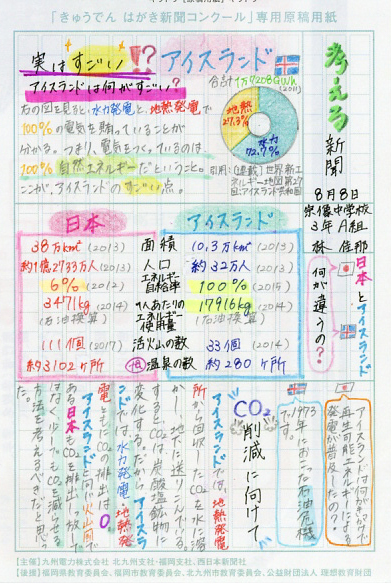 「きゅうでん はがき新聞コンクール」専用原稿用紙
考えろ新聞
8月8日
3年A組
日本とアイスランド
何が違うの？
実はすごい!? アイスランド
アイスランドは何がすごい？
右の図を見ると、水力発電と地熱発電で
100%の電気を賄っていることが
分かる。つまり、電気をつくっているのは、
100%自然エネルギーだということ。
ここが、アイスランドのすごい点。
合計1万7208GWh
(2011)
地熱
27.3%
水力
72.7%
引用:(連載)世界新エ
ネルギー地図第27
回:アイスランド共和国
日本 アイスランド
38万km² (2013) 面積 10.3万km² (2013)
約1億2733万人 (2013) 人口 約32万人 (2013)
6% (2012) エネルギー自給率 100% (2015)
3471kg (2014) 1人あたりのエネルギー使用量 17916kg (2014)
(石油換算) (石油換算)
111個 (2017) 活火山の数 33個 (2014)
約3102ヶ所 温泉の数 約280ヶ所
アイスランドは何がきっかけで
再生可能エネルギーによる
発電が普及したの？
1973年におこった石油危機
です。
CO₂削減に向けて
アイスランドでは、地熱発電
所から回収したCO₂を水に溶
かし、地下に送りこんでいる。
するとCO₂は炭酸塩鉱物に
変化する。だから、アイスラ
ンドでは水力発電、地熱発
電ともにCO₂の排出は0。
アイスランドと同じ火山国で
ある日本もCO₂を排出し放して
はなく、少しでもCO₂を減らせる
方法を考えるべきだと思っ
た。
[主催]九州電力株式会社 北九州支社・福岡支社、西日本新聞社
[後援]福岡県教育委員会、福岡市教育委員会、北九州市教育委員会、公益財団法人 理想教育財団